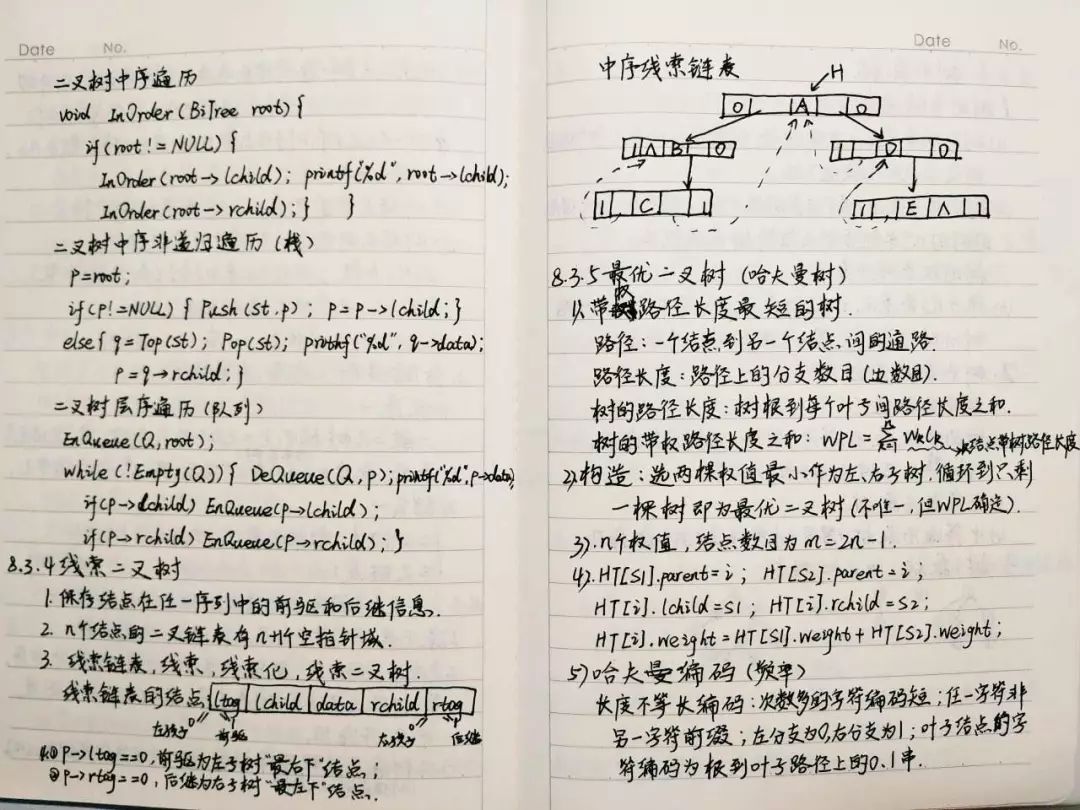 Date No.
二叉树中序遍历
void InOrder(BiTree root){
if(root!=NULL){
InOrder(root->lchild); printf("%d", root->lchild);
InOrder(root->rchild);} }
二叉树中序非递归遍历(栈)
P=root;
if(P!=NULL){ Push(St,p); P=P->lchild;}
else{ q=Top(St); Pop(St); printf("%d", q->data);
P=q->rchild;}
二叉树层序遍历(队列)
EnQueue(Q,root);
while(!Empty(Q)){ DeQueue(Q,p); printf("%d",p->data);
if(P->lchild) EnQueue(P->lchild);
if(P->rchild) EnQueue(P->rchild);}
8.3.4 线索二叉树
1. 保存结点在任一序列中的前驱和后继信息.
2. n个结点的二叉链表有n+1个空指针域.
3. 线索链表,线索,线索化,线索二叉树.
线索链表的结点 ltag lchild data rchild rtag
左孩子 0 1 前驱 右孩子 0 1 后继
4.① P->ltag==0,前驱为左子树"最右下"结点;
② P->rtag==0,后继为右子树"最左下"结点.
Date No.
中序线索链表
H
0 A 0
1 Λ B 0 1 D 0
1 C 1 1 E Λ 1
8.3.5 最优二叉树(哈夫曼树)
1).带权路径长度最短的树.
路径:一个结点到另一个结点间的通路.
路径长度:路径上的分支数目(边数目).
树的路径长度:树根到每个叶子间路径长度之和.
树的带权路径长度之和: WPL=Σ WkLk 结点带树路径长度
2).构造:选两棵权值最小作为左、右子树.循环到只剩
一棵树即为最优二叉树(不唯一,但WPL确定).
3).n个权值,结点数目为m=2n-1.
4).HT[S1].parent=i; HT[S2].parent=i;
HT[i].lchild=S1; HT[i].rchild=S2;
HT[i].weight=HT[S1].weight+HT[S2].weight;
5)哈夫曼编码(频率)
长度不等长编码:次数多的字符编码短;任一字符非
另一字符前缀;左分支为0,右分支为1;叶子结点的字
符编码为根到叶子路径上的0.1串.